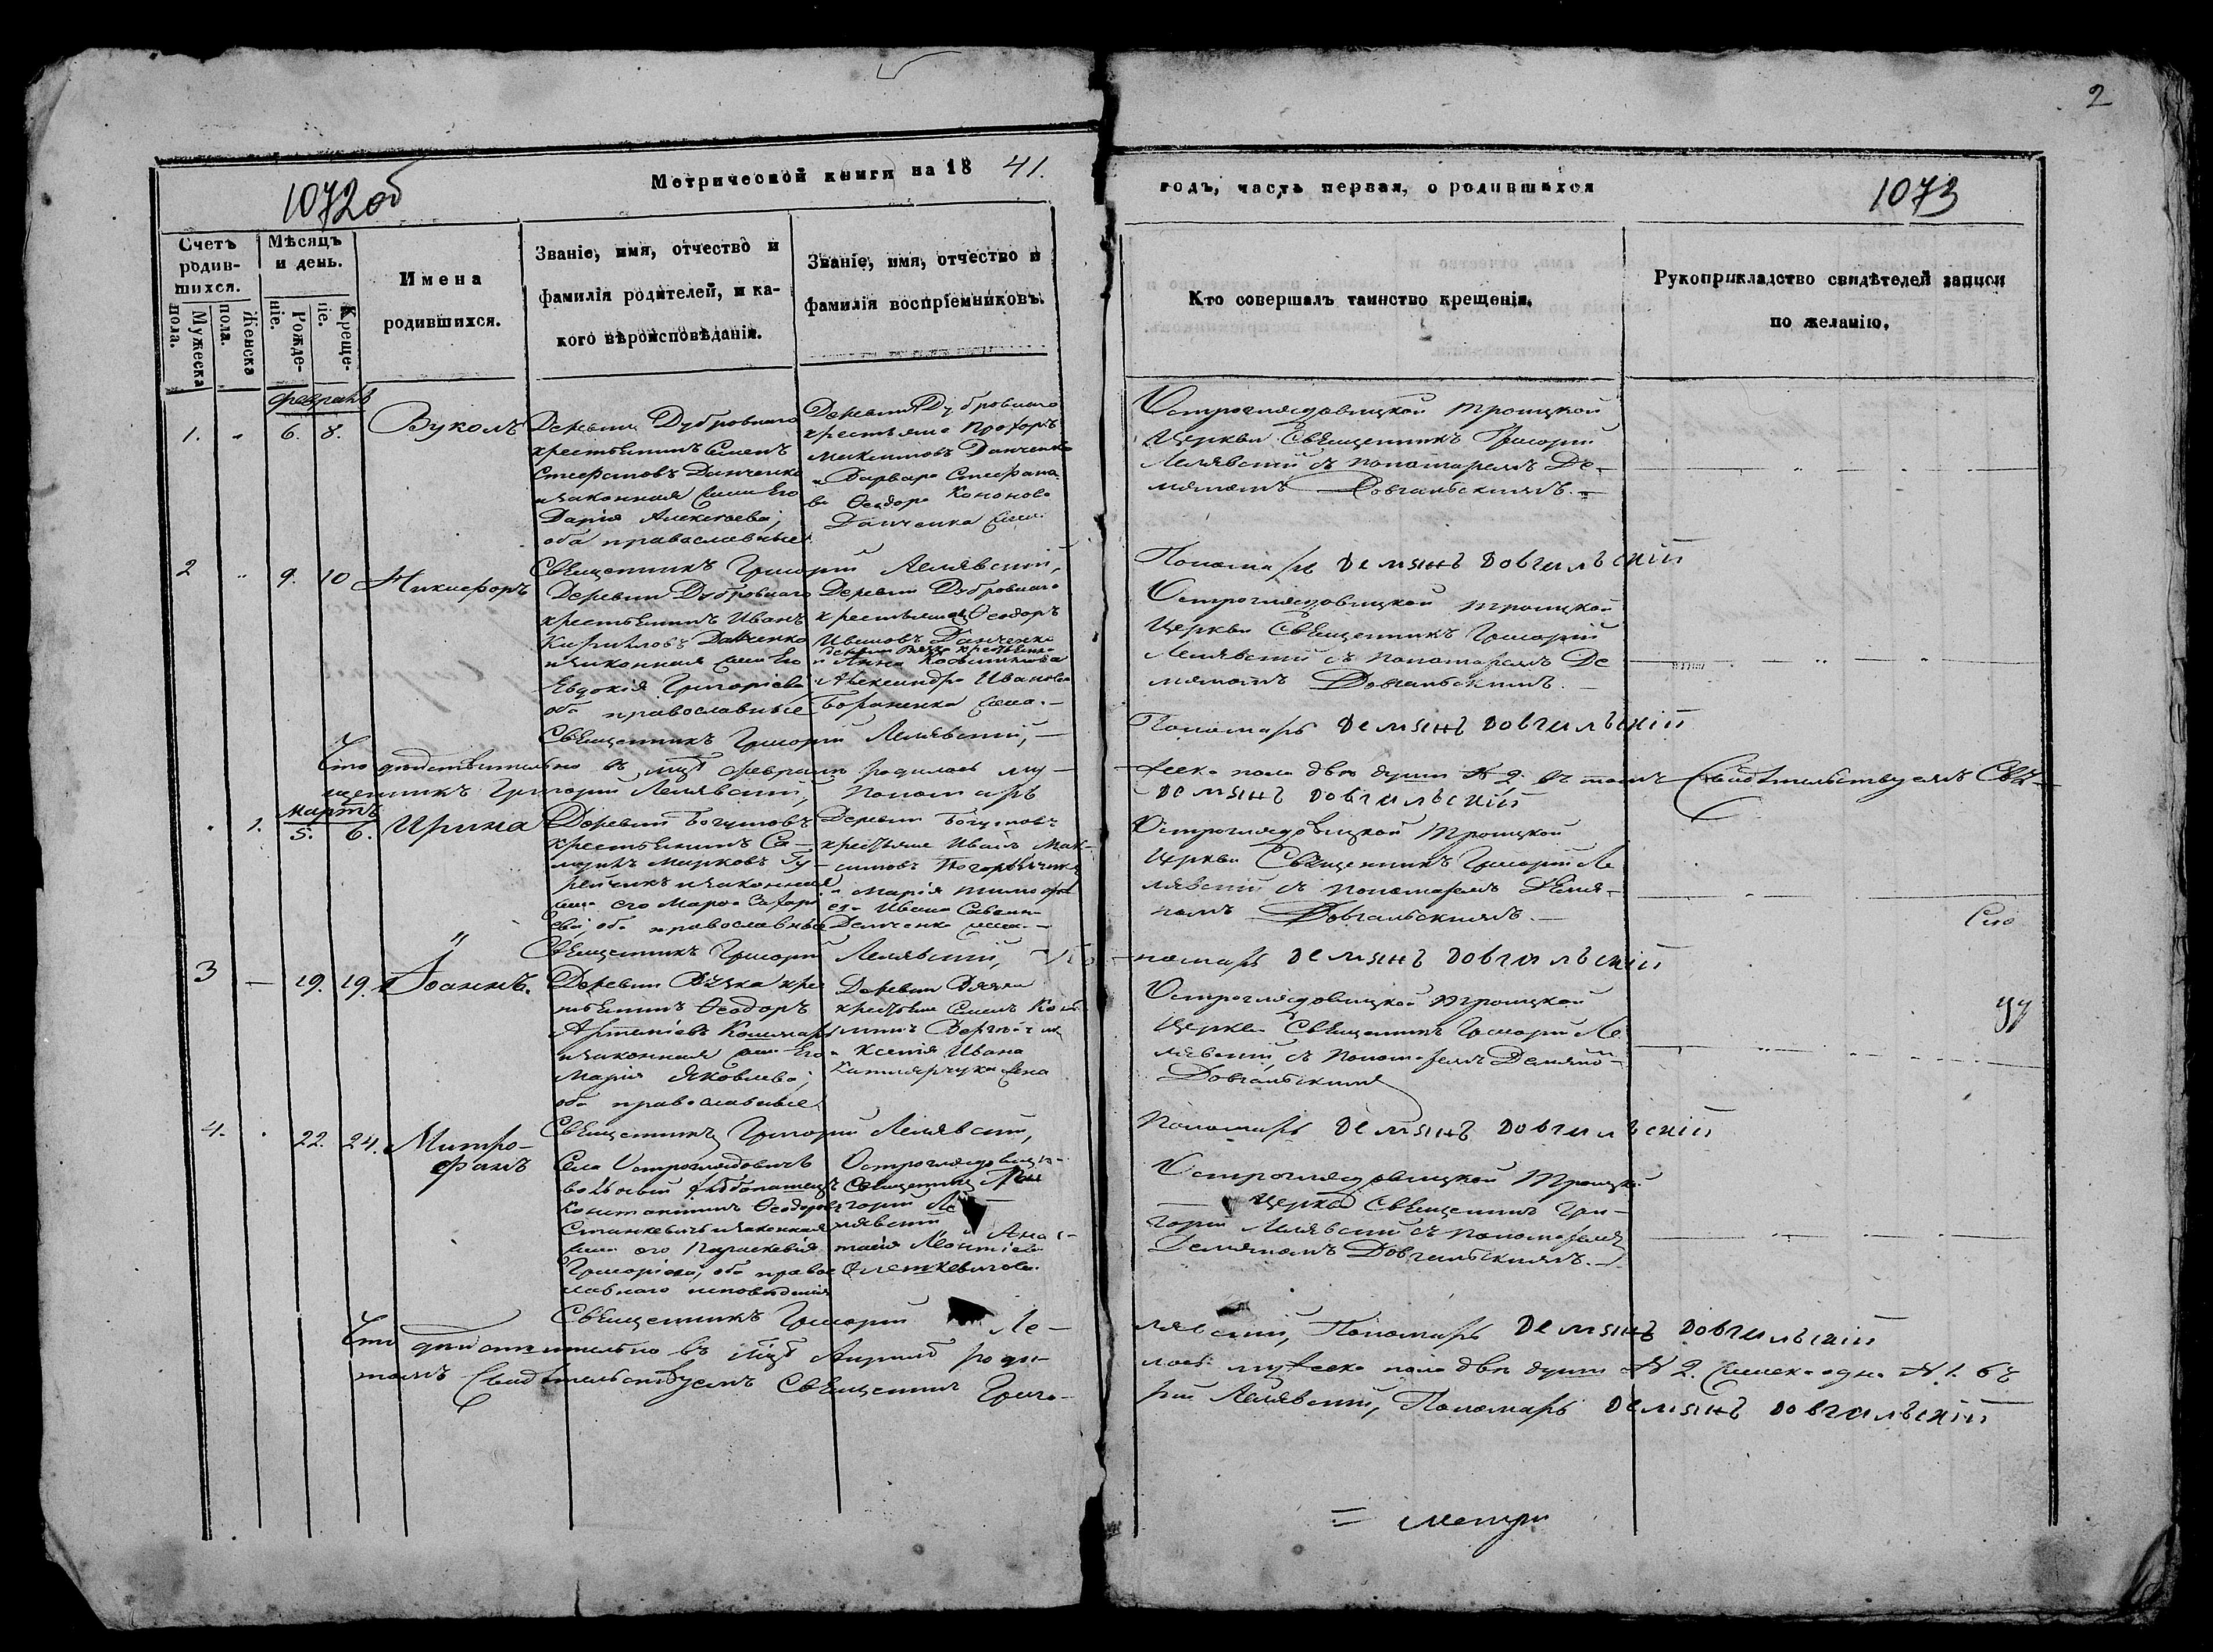 2
Метрической книги на 18 41.
годъ, часть первая, о родившихся
1072 об
1073
Счетъ родившихся.
Мужеска пола.
Женска пола.
Мѣсяцъ и день.
Рожденіе.
Крещеніе.
Имена
родившихся.
Званіе, имя, отчество и
фамилія родителей, и ка-
кого вѣроисповѣданія.
Званіе, имя, отчество и
фамилія воспріемниковъ.
Кто совершалъ таинство крещенія.
Рукоприкладство свидѣтелей записи
по желанію.
февраль
1. 6. 8. Вуколъ
Деревни Дубровнаго
крестьянинъ Семенъ
Стефановъ Данченко
и законная жена Его
Дарія Алексѣева,
оба православные
Деревни Дубровнаго
крестьяне Прохоръ
Максимовъ Данченко
и Варвара Стефана-
ва Ѳеодора Кононова
Данченка жена
Остроглядовицкой Троицкой
Церкви Священникъ Григорій
Лелявскій съ пономаремъ Де-
мяномъ Довгальскимъ.
Священникъ Григорій Лелявскій,
Пономарь Демянъ Довгальскій
2 9. 10 Никифоръ
Деревни Дубровнаго
крестьянинъ Иванъ
Кириловъ Данченко
и законная жена Его
Евдокія Григоріева
оба православные
Деревни Дубровнаго
крестьянинъ Ѳеодоръ
Ивановъ Данченко
и Анна
Александра Иванова
жена.
Остроглядовицкой Троицкой
Церкви Священникъ Григорій
Лелявскій съ пономаремъ Де
мяномъ Довгальскимъ.
Священникъ Григорій Лелявскій,
Пономарь Демянъ Довгальскій
Что дѣйствительно въ мцѣ февралѣ родилось му-
жеска пола двѣ души № 2. въ томъ Свидѣтельствуемъ Свя-
щенникъ Григорій Лелявскій, Пономарь
Демянъ Довгальскій
мартъ
1. 5. 6. Ирина
Деревни Богушовъ
крестьянинъ Са-
муилъ Марковъ Гу-
рейчикъ и законная
жена его Марѳа Захарі
ева, оба православные
Деревни Богушовъ
крестьяне Иванъ Мак-
симовъ
и Марія Тимоѳе
ева Ивана
Демченка жена.
Остроглядовицкой Троицкой
Церкви Священникъ Григорій Ле
лявскій съ пономаремъ Демя-
номъ Довгальскимъ.
Сію
Священникъ Григорій Лелявскій, По-
номарь Демянъ Довгальскій
3 19. 19. Іоаннъ.
Деревни Вязка кре
стьянинъ Ѳеодоръ
Артеміевъ
и законная жена Его
Марія Яковлева,
оба православные
Деревни Вязка
крестьяне Семенъ
и Ксенія Ивана
жена
Остроглядовицкой Троицкой
Церкви Священникъ Григорій Ле
лявскій, съ Пономаремъ Демяно-
Довгальскимъ
Священникъ Григорій Лелявскій,
Пономарь Демянъ Довгальскій
4. 22. 24. Митро-
фанъ
Села Остроглядовичъ
вольный хлѣбопашецъ
Константинъ Ѳеодоровъ
Станкевичъ и законная
жена его Параскевія
Григоріева, оба правос
лавнаго исповѣданія
Остроглядовицк-
Священникъ Гри
горій Ле
лявскій
Анас-
тасія Леонтіева
Остроглядовицкой Троицкой
Церкви Священникъ Гри-
горій Лелявскій съ Пономаремъ
Демяномъ Довгальскимъ.
Священникъ Григорій Ле-
лявскій, Пономарь Демянъ Довгальскій
Что дѣйствительно въ мцѣ родилось мужеска пола двѣ души № 2. женска одна № 1. въ
томъ Свидѣтельствуемъ Священникъ Григо-
рій Лелявскій, Пономарь Демянъ Довгальскій
метри